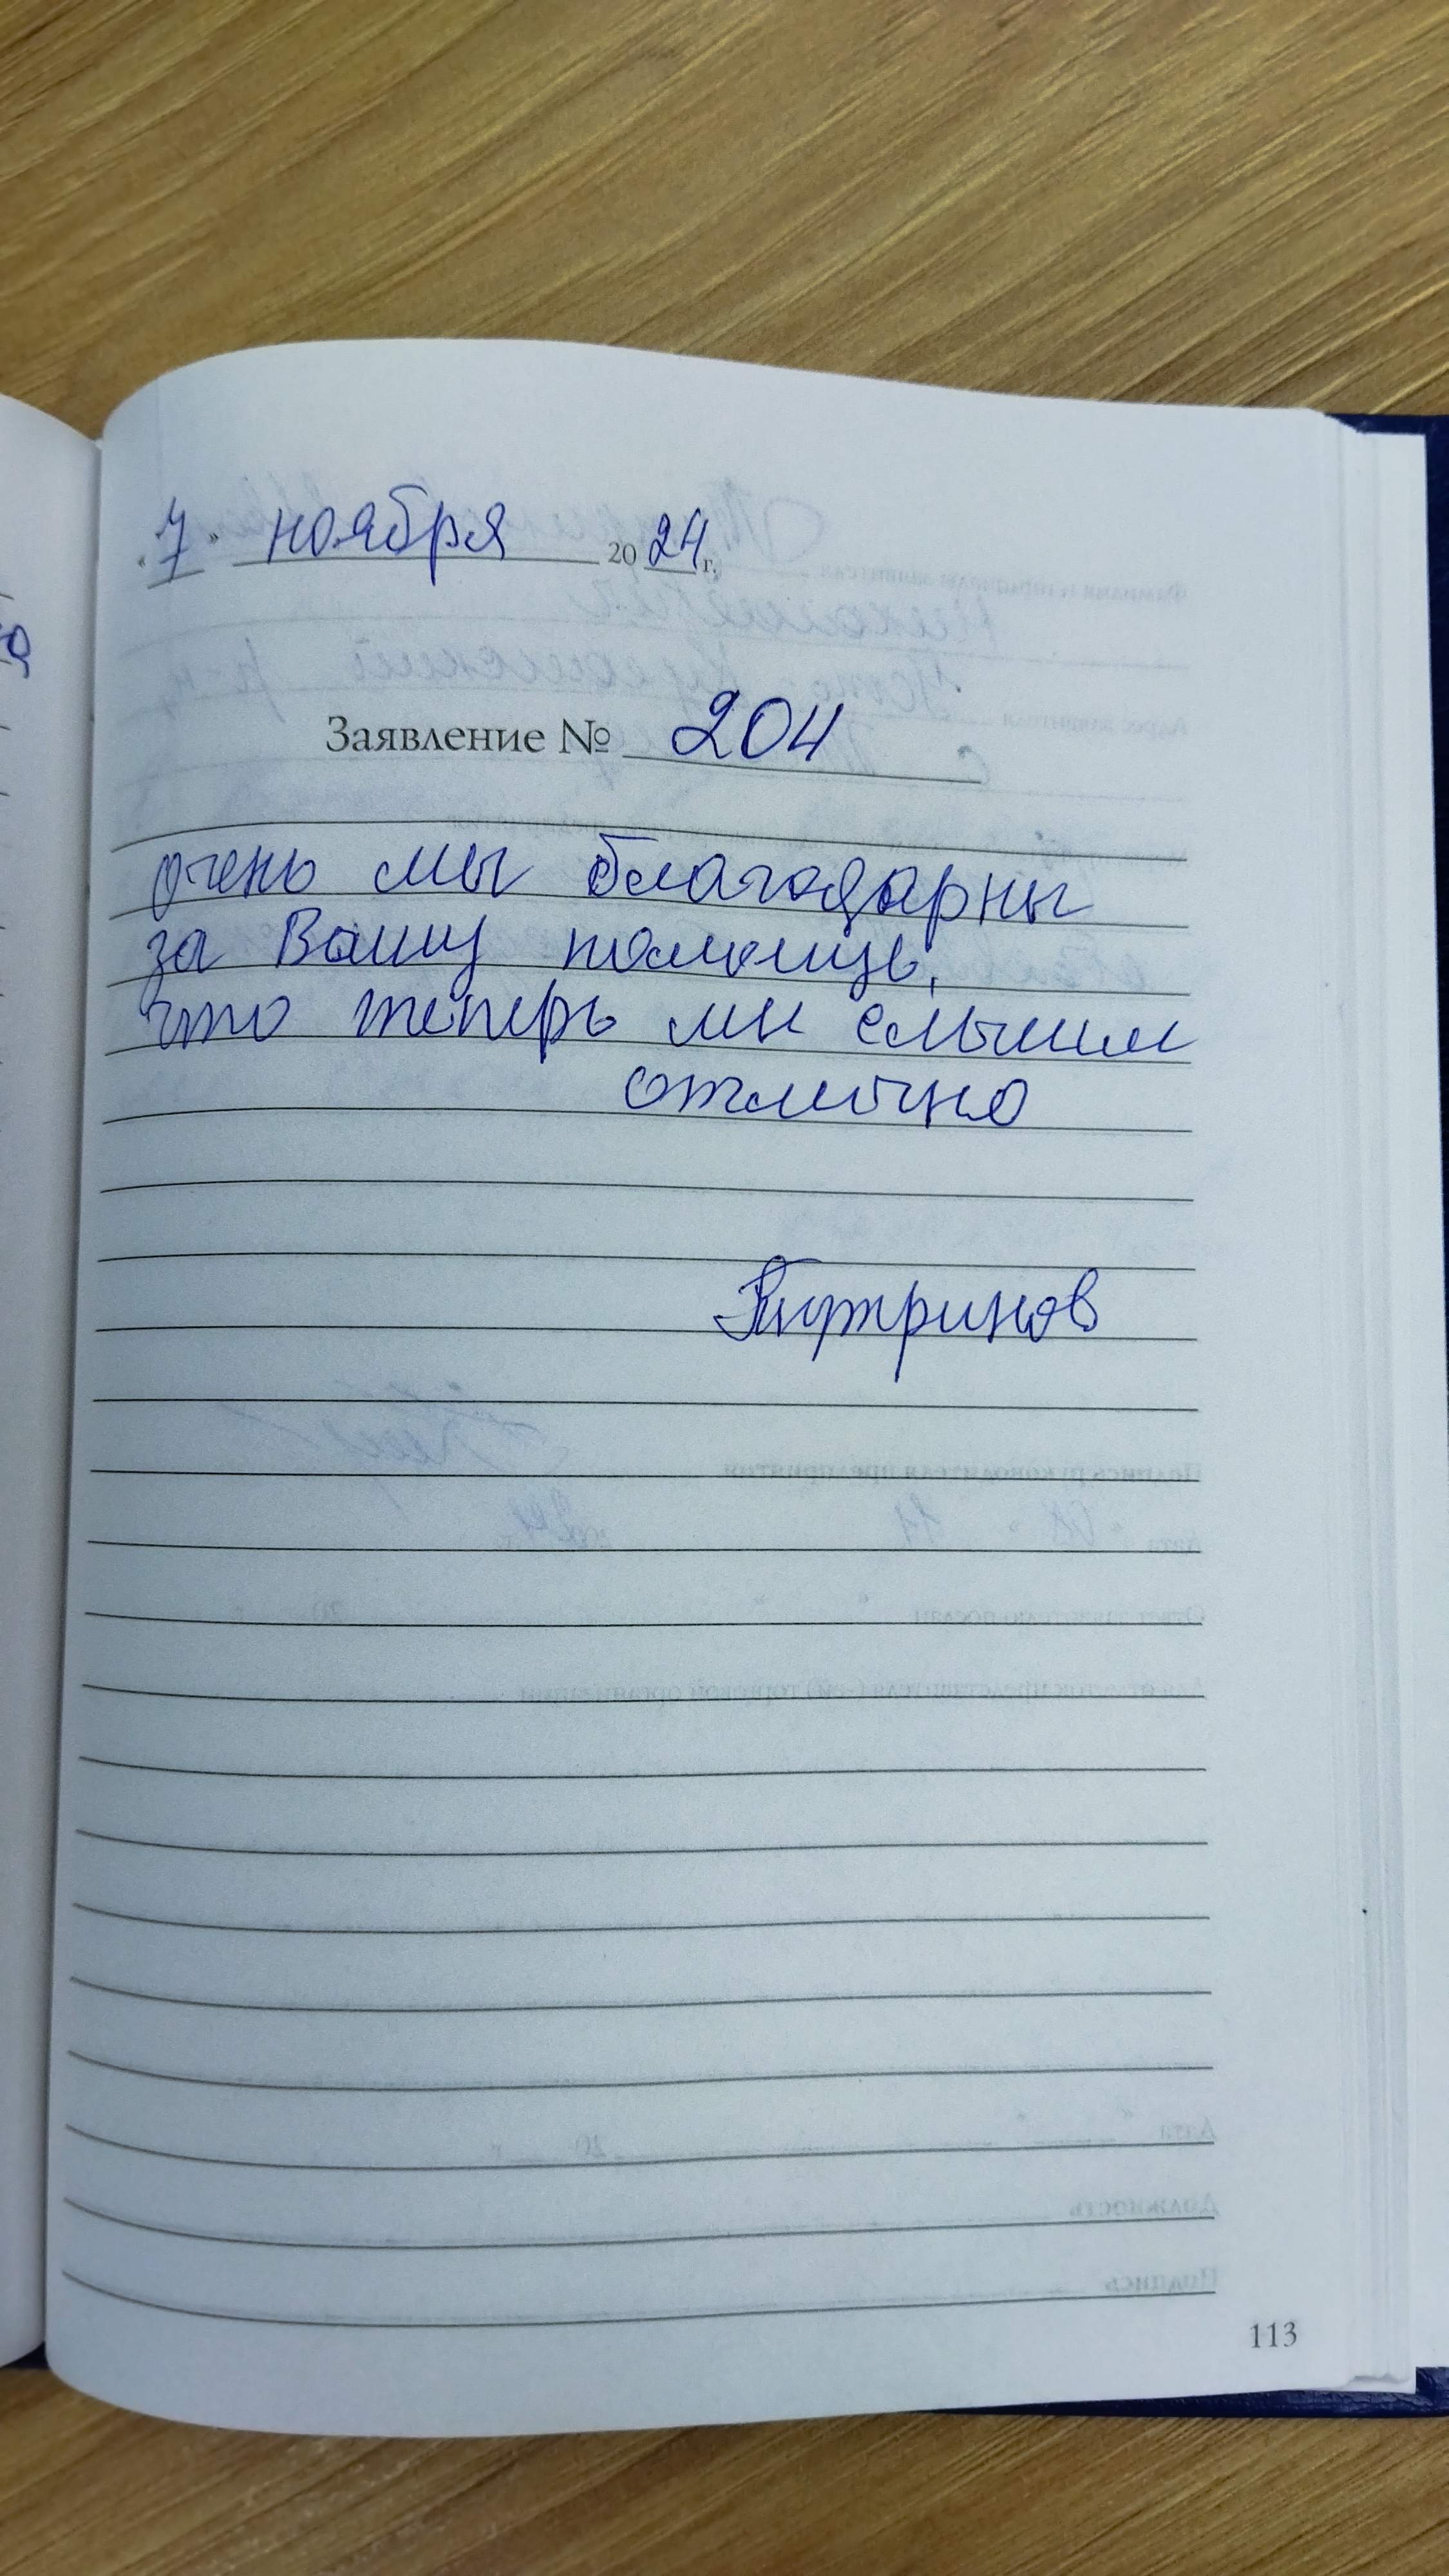 «7» ноября 2024 г.
Заявление № 204
очень мы благодарны
за Вашу помощь,
что теперь мы слышим
отлично
113